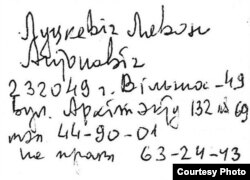 Луцкевіч Левон
Антонавіч
232049 г. Вільнюс-49
вул. Архітэктаў 132 кв 69
тэл 44-90-01
на працы 63-24-43
Courtesy Photo